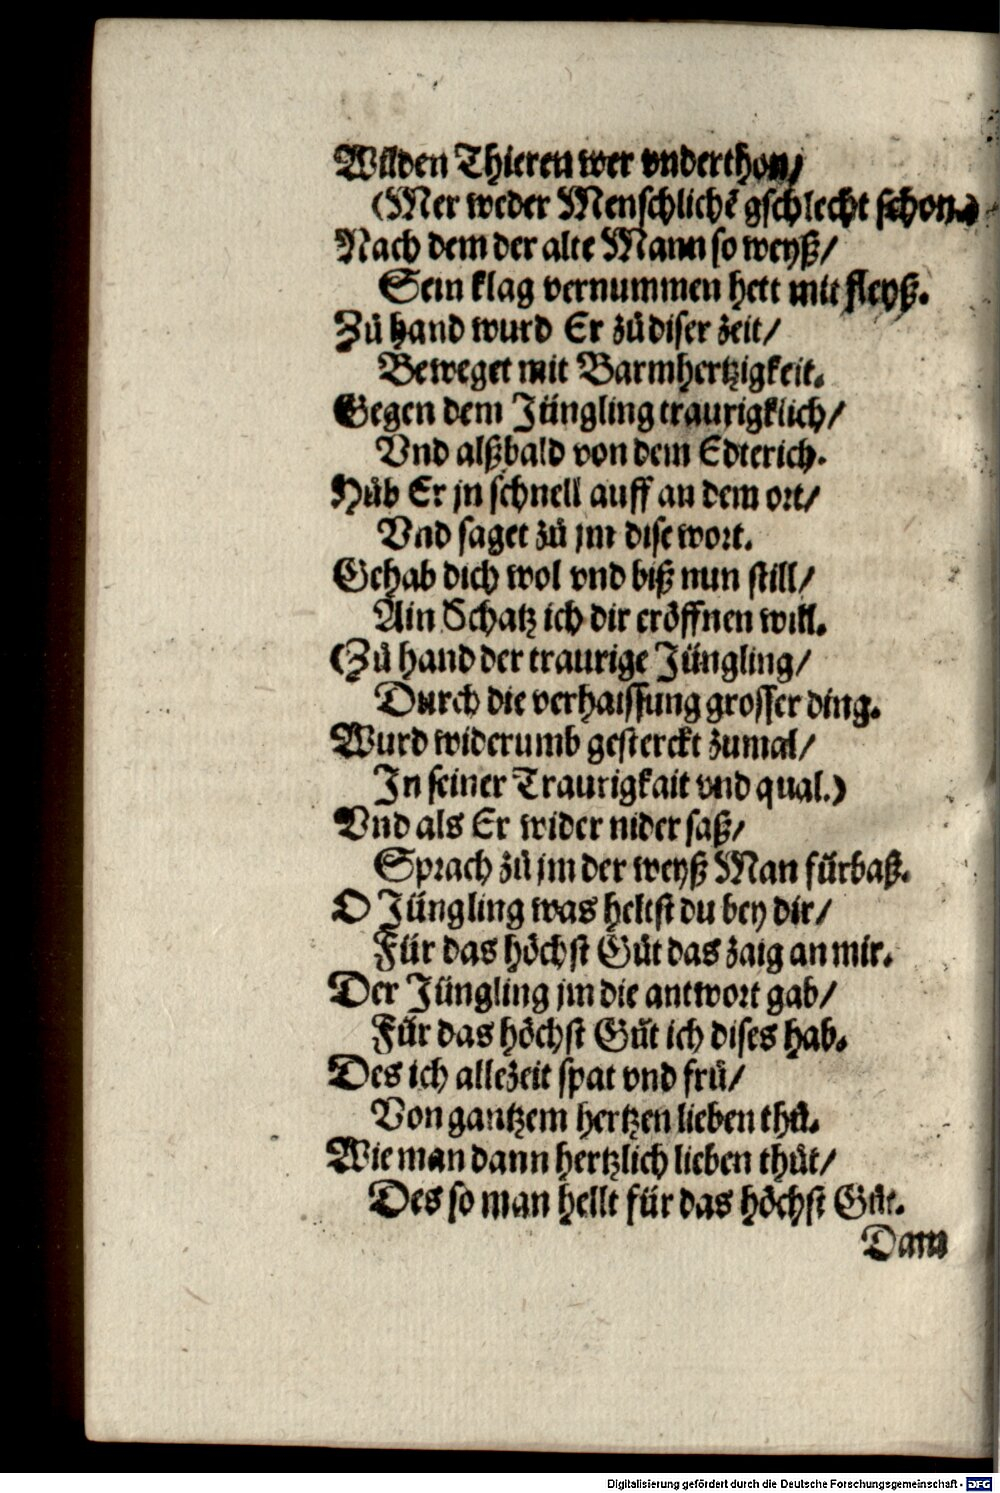 Wilden Thieren wer vnderthon/
(Mer weder Menschlichē gschlecht schon.)
Nach dem der alte Mann so weyß/
Sein klag vernummen hett mit fleyß.
Zů hand wurd Er zů diser zeit/
Beweget mit Barmhertzigkeit.
Gegen dem Jüngling traurigklich/
Vnd alßbald von dem Edterich.
Hůb Er jn schnell auff an dem ort/
Vnd saget zů jm dise wort.
Gehab dich wol vnd biß nun still/
Ain Schatz ich dir eröffnen will.
(Zů hand der traurige Jüngling/
Durch die verhaissung grosser ding.
Wurd widerumb gesterckt zumal/
In seiner Traurigkait vnd qual.)
Vnd als Er wider nider saß/
Sprach zů jm der weyß Man fürbaß.
O Jüngling was heltst du bey dir/
Für das höchst Gůt das zaig an mir.
Der Jüngling jm die antwort gab/
Für das höchst Gůt ich dises hab.
Des ich allezeit spat vnd frů/
Von gantzem hertzen lieben thů.
Wie man dann hertzlich lieben thůt/
Des so man hellt für das höchst Gůt.
Dann
Digitalisierung gefördert durch die Deutsche Forschungsgemeinschaft - DFG